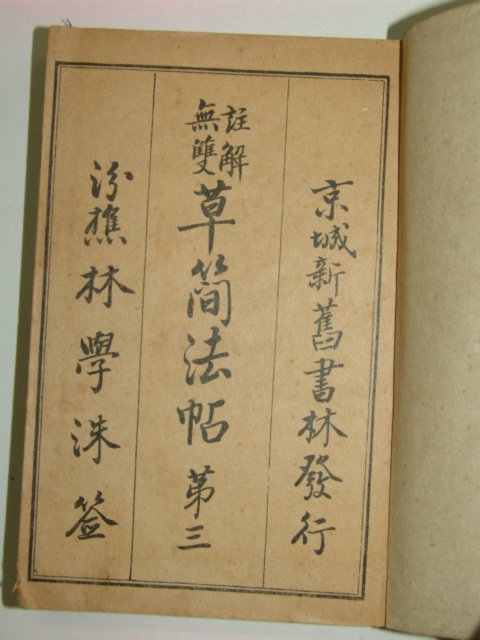 京城新舊書林發行
註解
無雙
草簡法帖 第三
汾樵林學洙簽